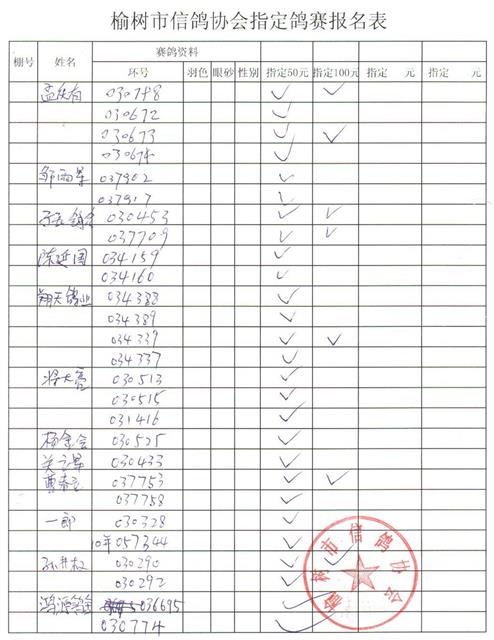 榆树市信鸽协会指定鸽赛报名表
棚号 姓名 赛鸽资料 指定50元 指定100元 指定 元 指定 元
环号 羽色 眼砂 性别
孟庆有 030748 ✓ ✓
030672 ✓
030673 ✓ ✓
030674 ✓
邹雨 037902 ✓
037917 ✓
030453 ✓ ✓
037709 ✓ ✓
陈延国 034159 ✓
034160 ✓
翔天鸽业 034388 ✓
034389 ✓
034339 ✓ ✓
034337 ✓
将大亮 030513 ✓
030515 ✓
031416 ✓
杨金会 030525 ✓
关 030433 ✓
曹 037753 ✓ ✓
037758 ✓
一郎 030328 ✓
10年057344 ✓
孙井权 030290 ✓ ✓
030292 ✓
鸿源鸽舍 036695 ✓
030774 ✓
榆树市信鸽协会